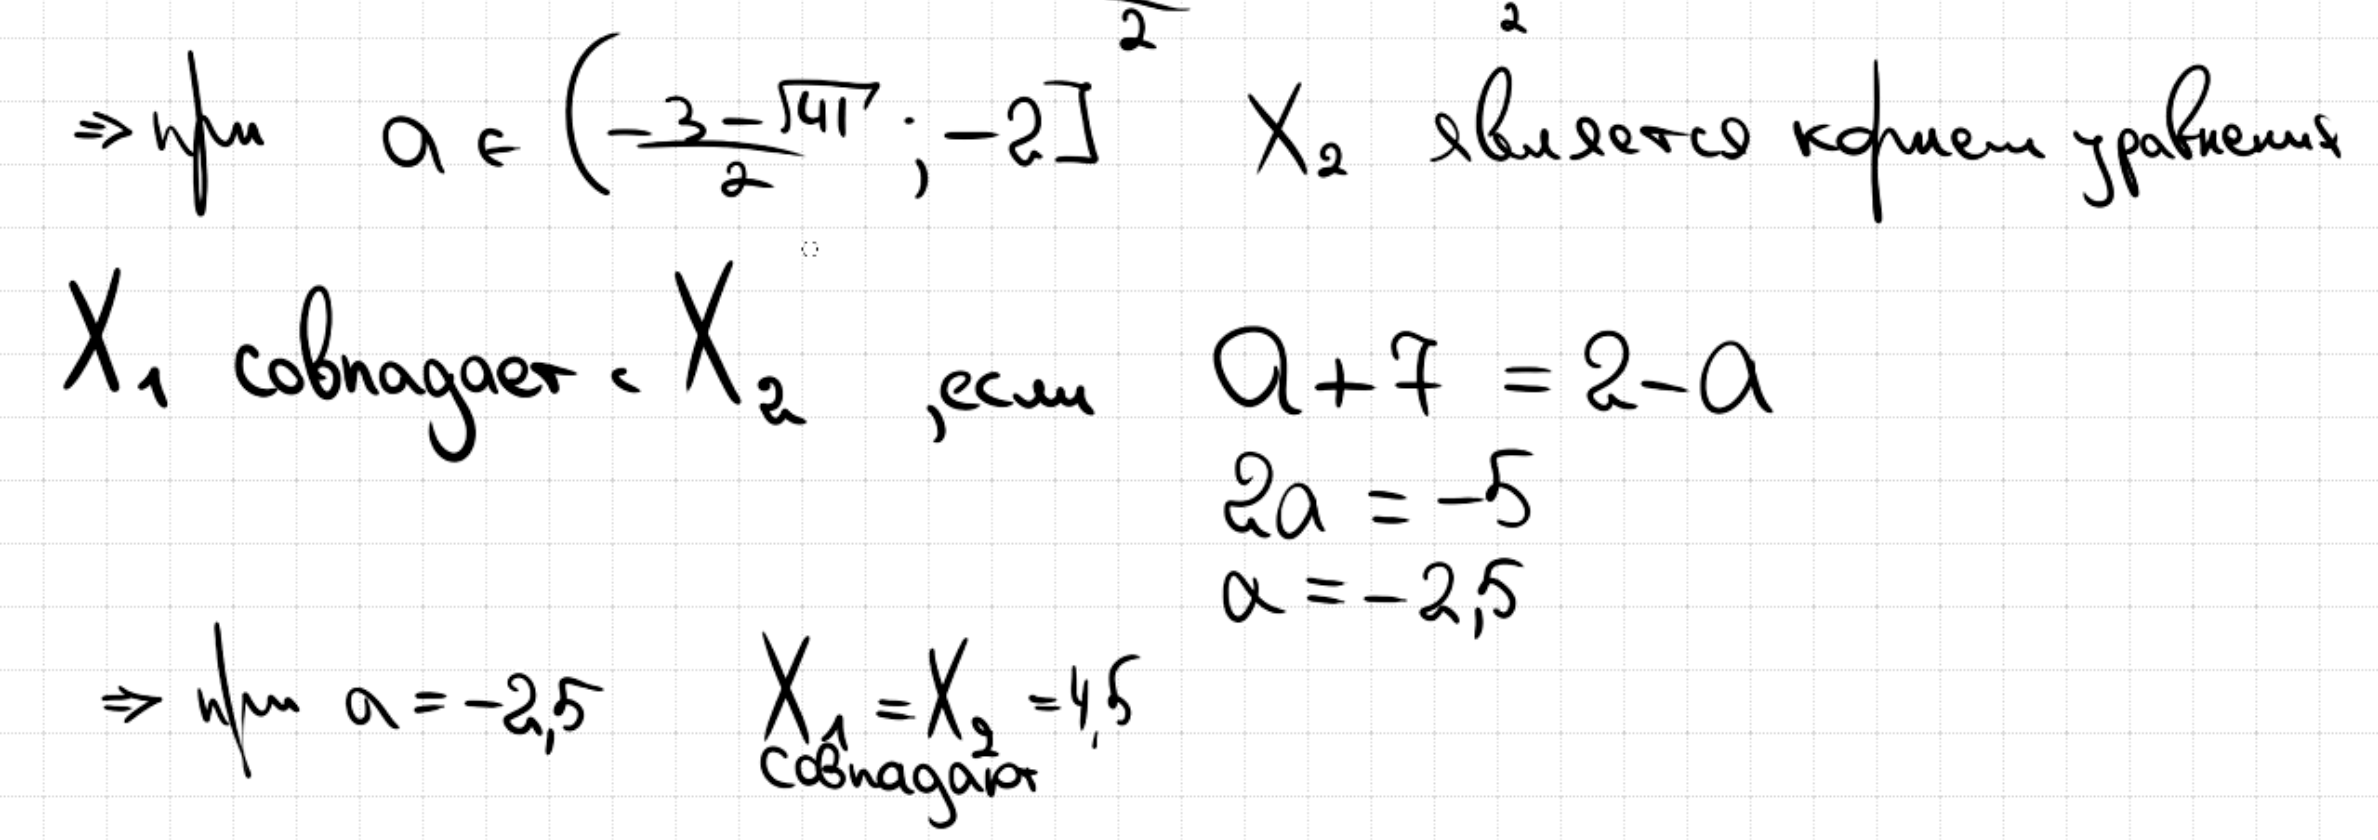 2 2
⇒ при a ∈ (-3-√41/2 ; -2] X₂ является корнем уравнения
X₁ совпадает с X₂ , если a+7 = 2-a
2a = -5
a = -2,5
⇒ при a = -2,5 X₁ = X₂ = 4,5
совпадают